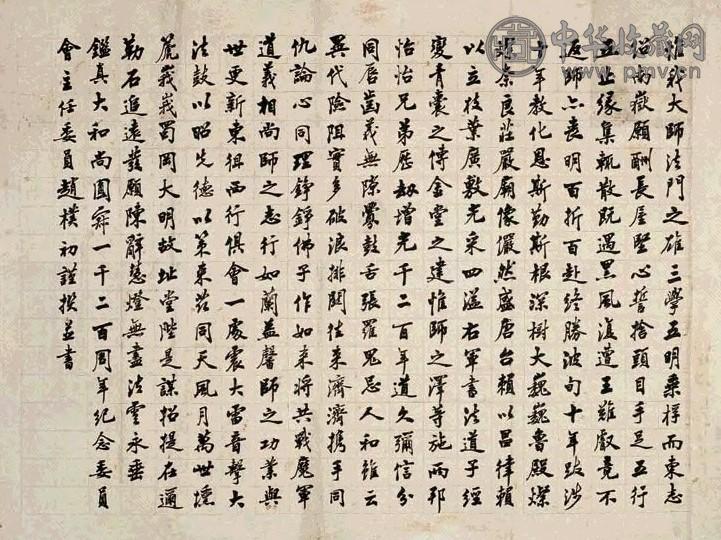 猗哉大師法門之雄三學五明乘桴而東志
紹南嶽願酬長屋堅心誓捨頭目手足五行
五止緣集輒散既遇黑風復遭王難叡竟不
返師亦喪明百折百赴終勝波旬十年跋涉
十年教化恩斯勤斯根深樹大巍巍魯殿燦
燦奈良莊嚴廟像儼然盛唐台賴以昌律賴
以立枝葉廣敷光采四溢右軍書法道子經
變青囊之傳金堂之建惟師之澤等施兩邦
怡怡兄弟歷劫增光千二百年道久彌信分
同唇齒義無隙釁鼓舌張羅鬼忌人和雖云
異代險阻實多破浪排關往來濟濟攜手同
仇論心同理錚錚佛子作如來將共戰魔軍
道義相尚師之志行如蘭益馨師之功業與
世更新東徂西行俱會一處震大雷音擊大
法鼓以昭先德以策來茲同天風月萬世壎
篪峩峩蜀岡大明故址堂陛是謀招提在邇
勒石追遠發願陳辭慧燈無盡法雲永垂
鑑真大和尚圓寂一千二百周年紀念委員
會主任委員趙樸初謹撰並書
中华收藏网
www.pmv.cn